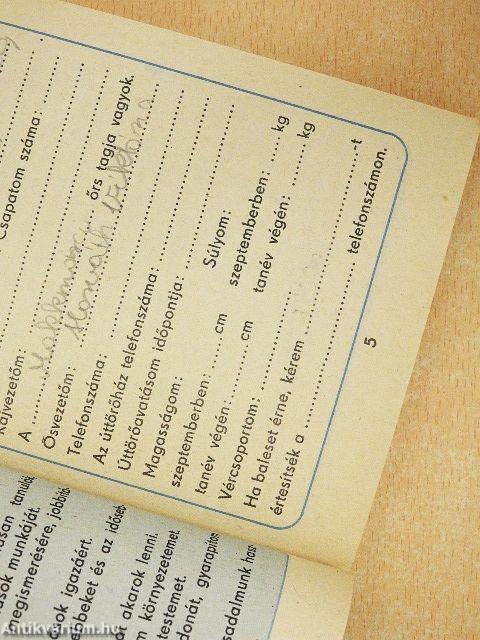 Csapatom száma:
Rajvezetőm:
A Makkmarci őrs tagja vagyok.
Ősvezetőm: Horváth Viktória
Telefonszáma:
Az úttörőház telefonszáma
Úttörőavatásom időpontja:
Magasságom: Súlyom:
szeptemberben: cm szeptemberben: kg
tanév végén: cm tanév végén: kg
Vércsoportom:
Ha baleset érne, kérem -t
értesítsék a telefonszámon.
5
tanulói
ások munkáját.
megismerésére, jobbítá
ok igazáért.
ebbeket és az idősebb
akarok lenni.
környezetemet.
testemet.
donát, gyarapítos
sadalmunk hass
Antikvarium.hu